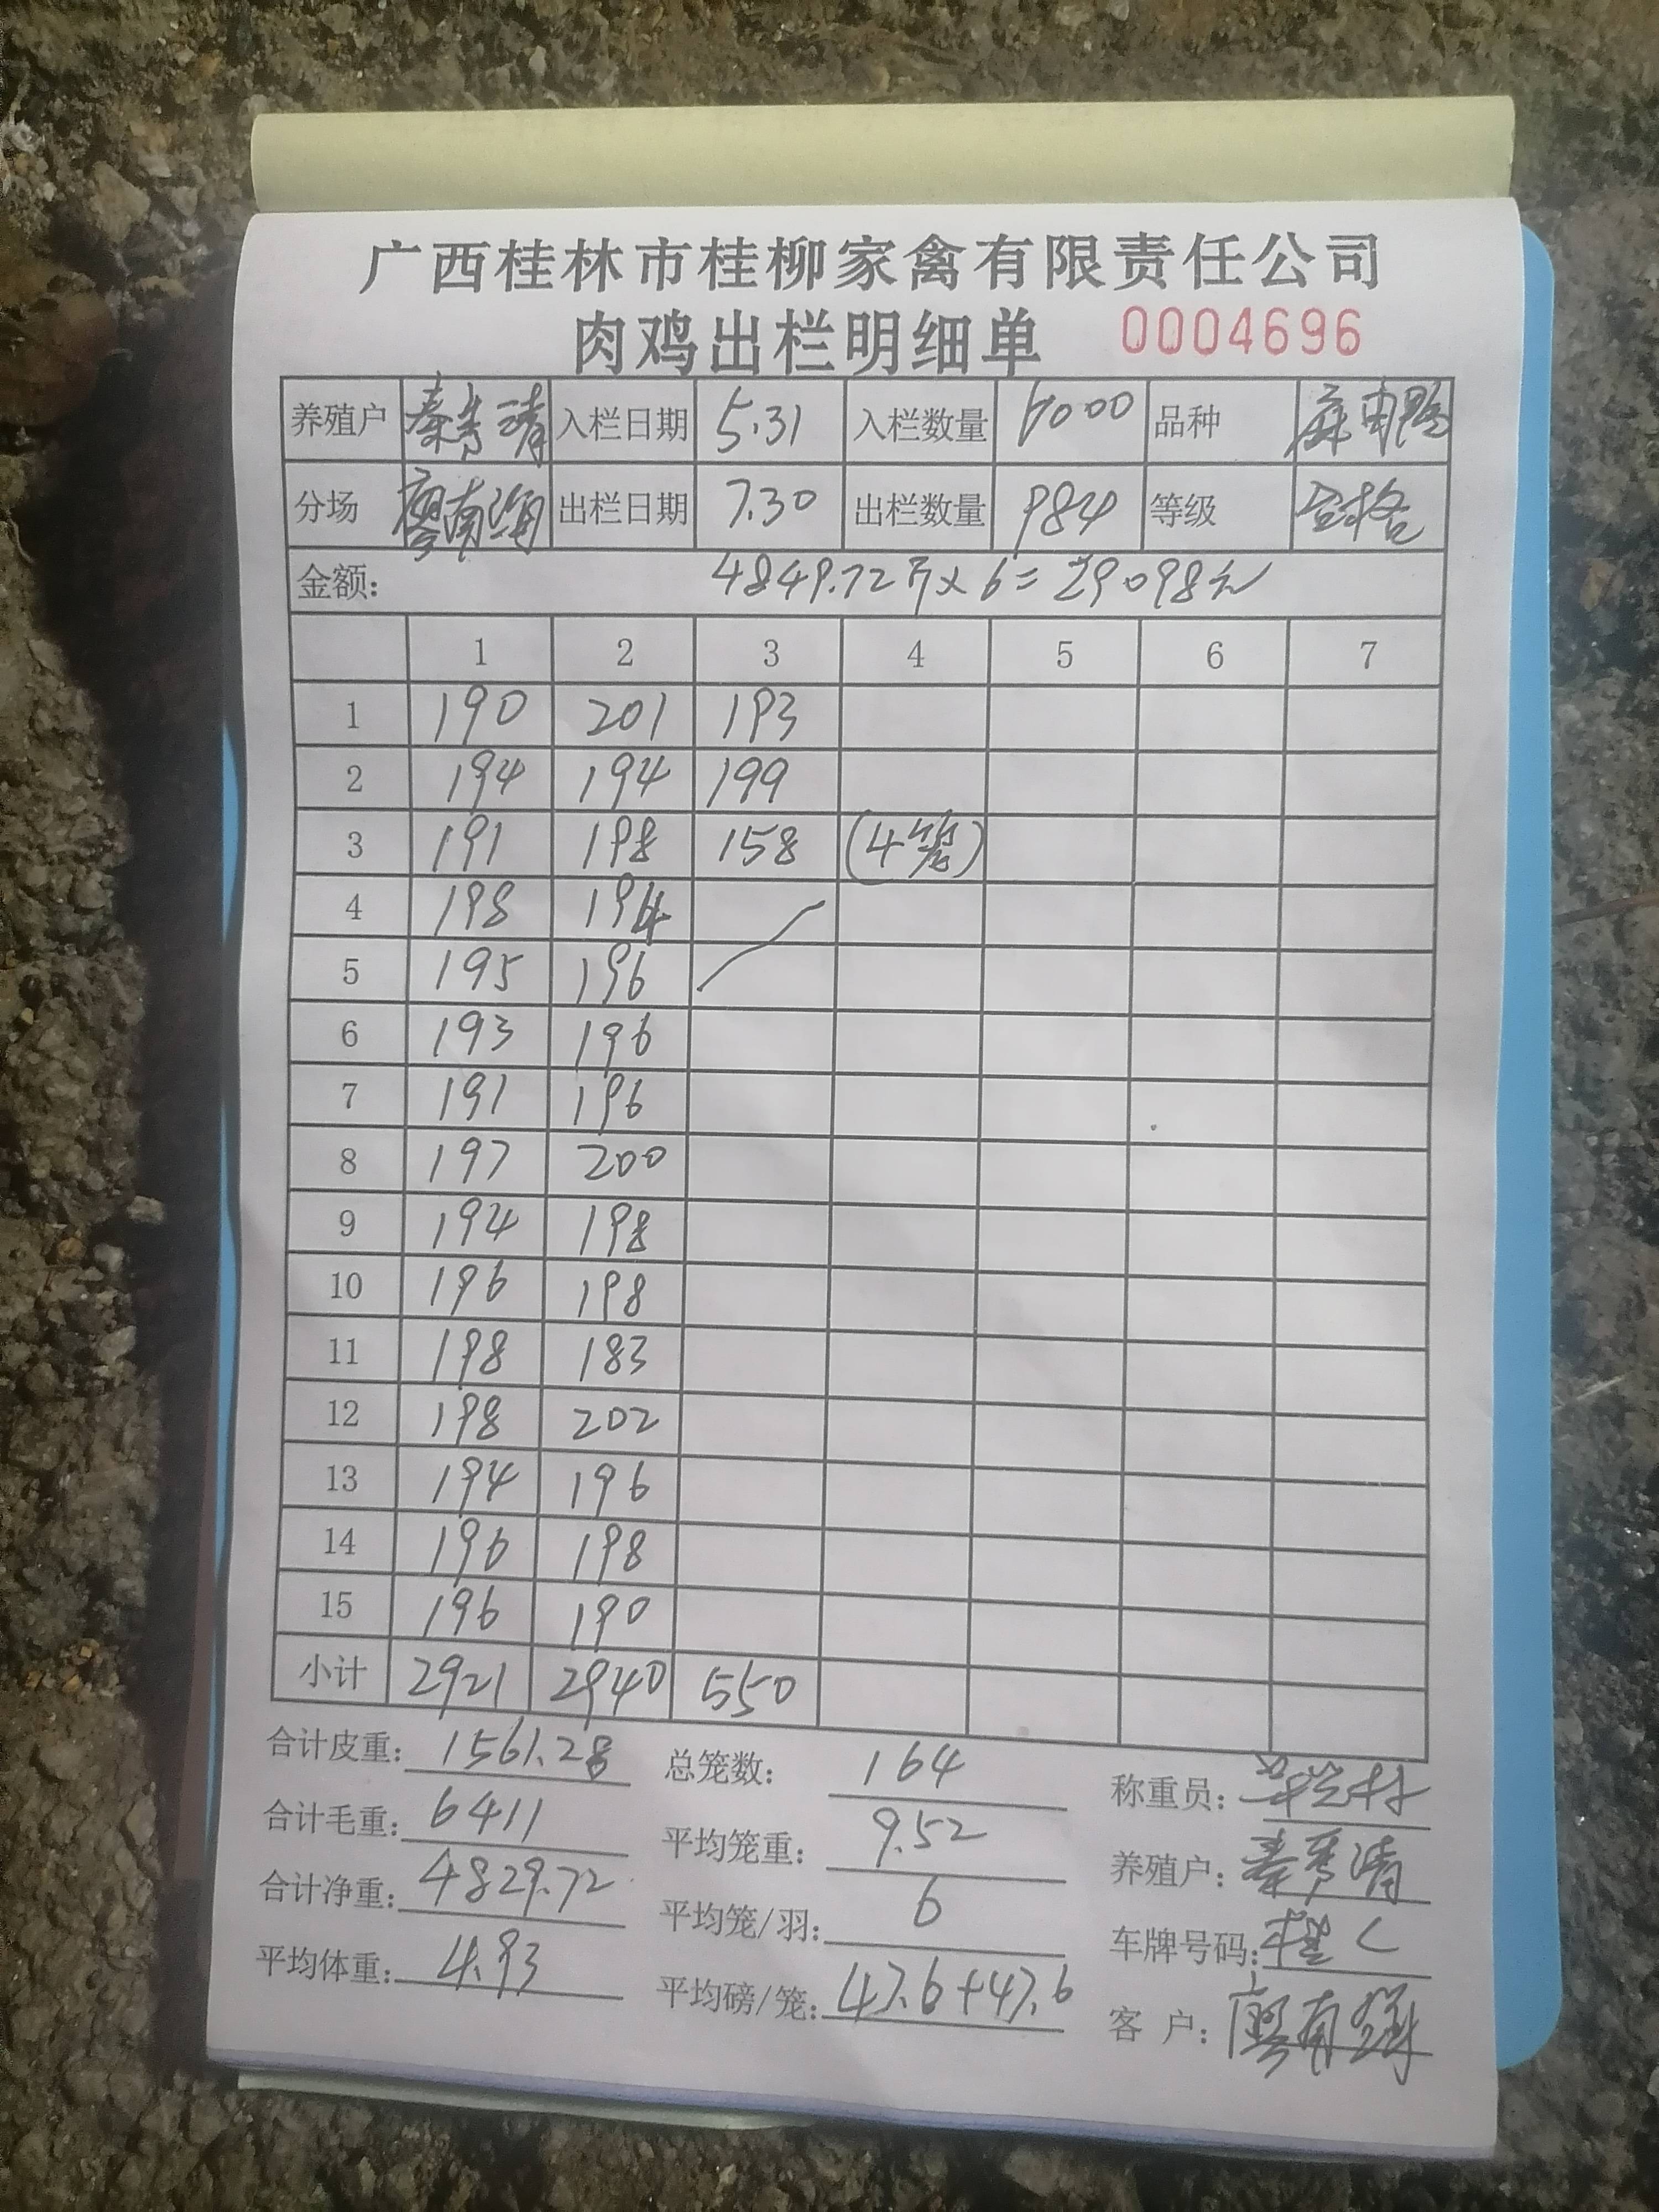 广西桂林市桂柳家禽有限责任公司
肉鸡出栏明细单 0004696
养殖户 秦秀清 入栏日期 5.31 入栏数量 6000 品种
分场 廖南海 出栏日期 7.30 出栏数量 984 等级 合格
金额: 4849.72斤×6=29098元
1 2 3 4 5 6 7
1 190 201 193
2 194 194 199
3 191 198 158 (4笼)
4 198 194
5 195 196
6 193 196
7 191 196
8 197 200
9 194 198
10 196 198
11 198 183
12 198 202
13 194 196
14 196 198
15 196 190
小计 2921 2940 550
合计皮重: 1561.28 总笼数: 164 称重员:
合计毛重: 6411 平均笼重: 9.52 养殖户: 秦秀清
合计净重: 4829.72 平均笼/羽: 6 车牌号码: 桂C
平均体重: 4.93 平均磅/笼: 47.6+47.6 客 户: